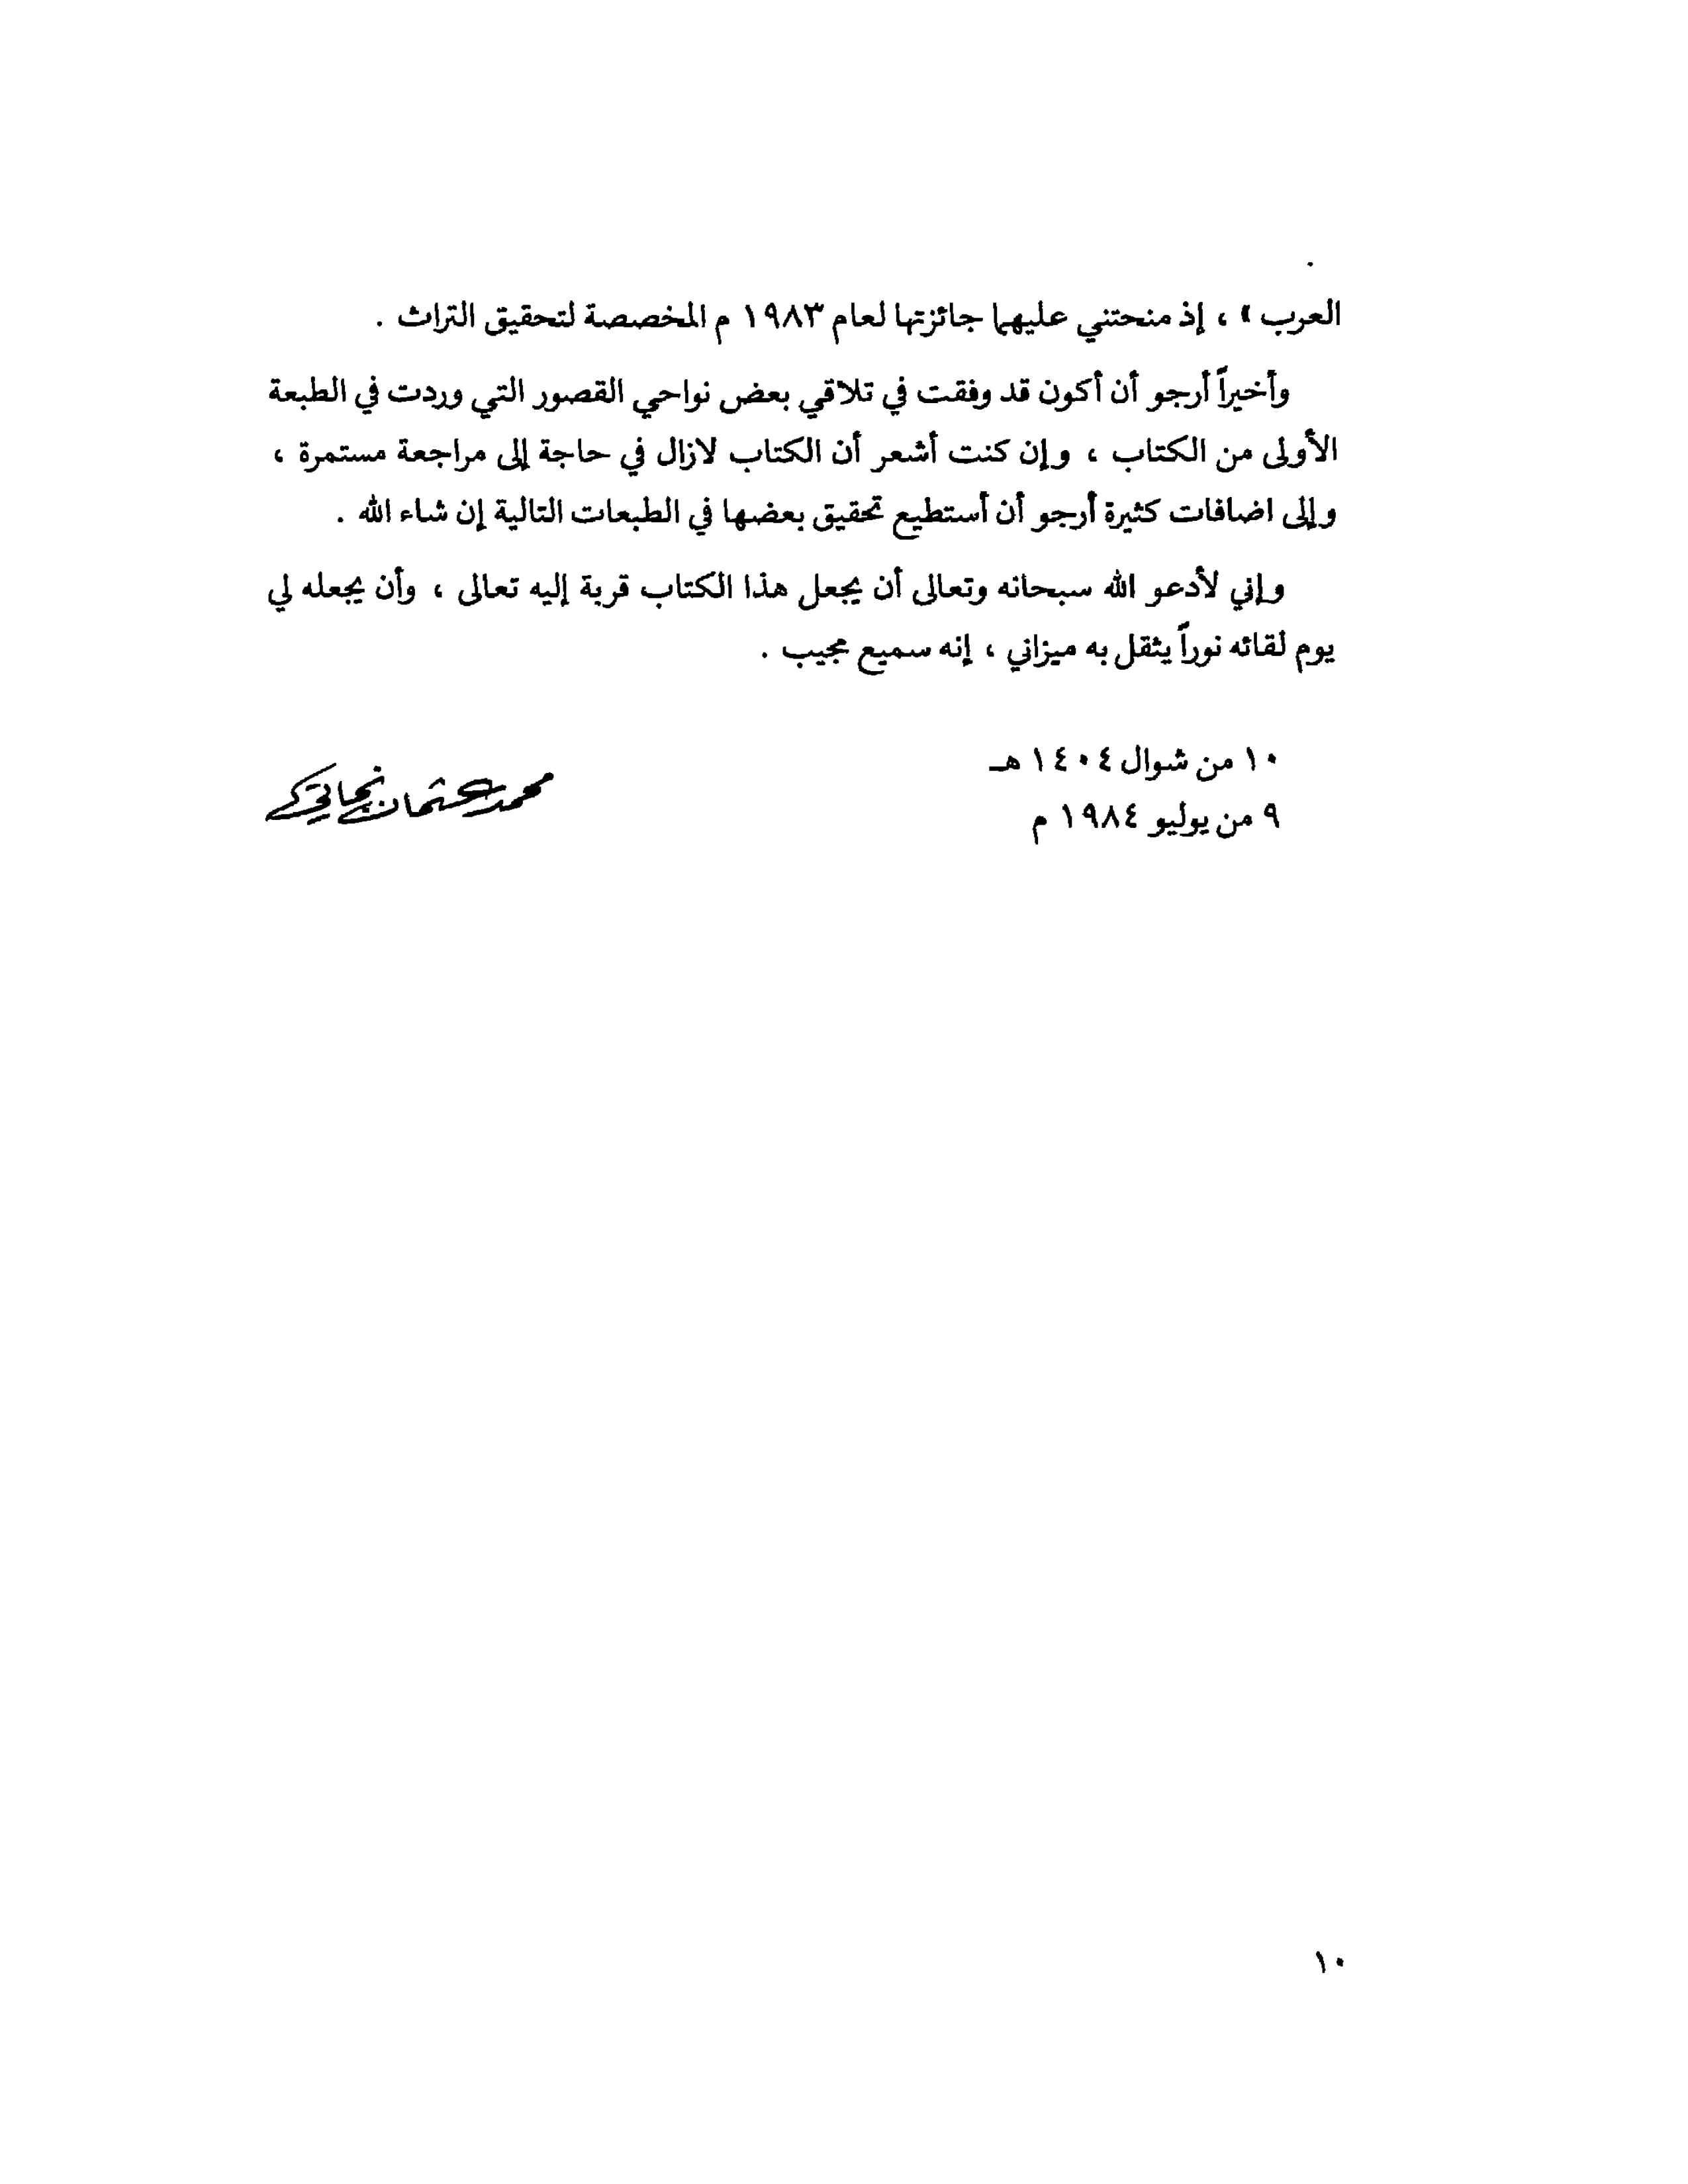 العرب » ، إذ منحتني عليهما جائزتها لعام ١٩٨٣ م المخصصة لتحقيق التراث .
وأخيراً أرجو أن أكون قد وفقت في تلاقي بعض نواحي القصور التي وردت في الطبعة
الأولى من الكتاب ، وإن كنت أشعر أن الكتاب لازال في حاجة إلى مراجعة مستمرة ،
وإلى اضافات كثيرة أرجو أن أستطيع تحقيق بعضها في الطبعات التالية إن شاء الله .
وإني لأدعو الله سبحانه وتعالى أن يجعل هذا الكتاب قربة إليه تعالى ، وأن يجعله لي
يوم لقائه نوراً يثقل به ميزاني ، إنه سميع مجيب .
١٠ من شوال ١٤٠٤ هـ
٩ من يوليو ١٩٨٤ م
محمد عثمان نجاتي
١٠